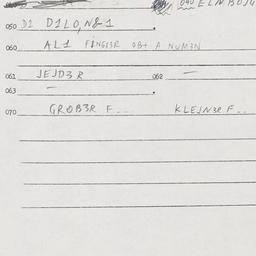 050 D1 D1LO,N&1 .
060 AL1 F1NGER OBT A NUM3N
061 JEJD3R 062 —
063 — .
070 GROB3R F... KLEJN3R F...